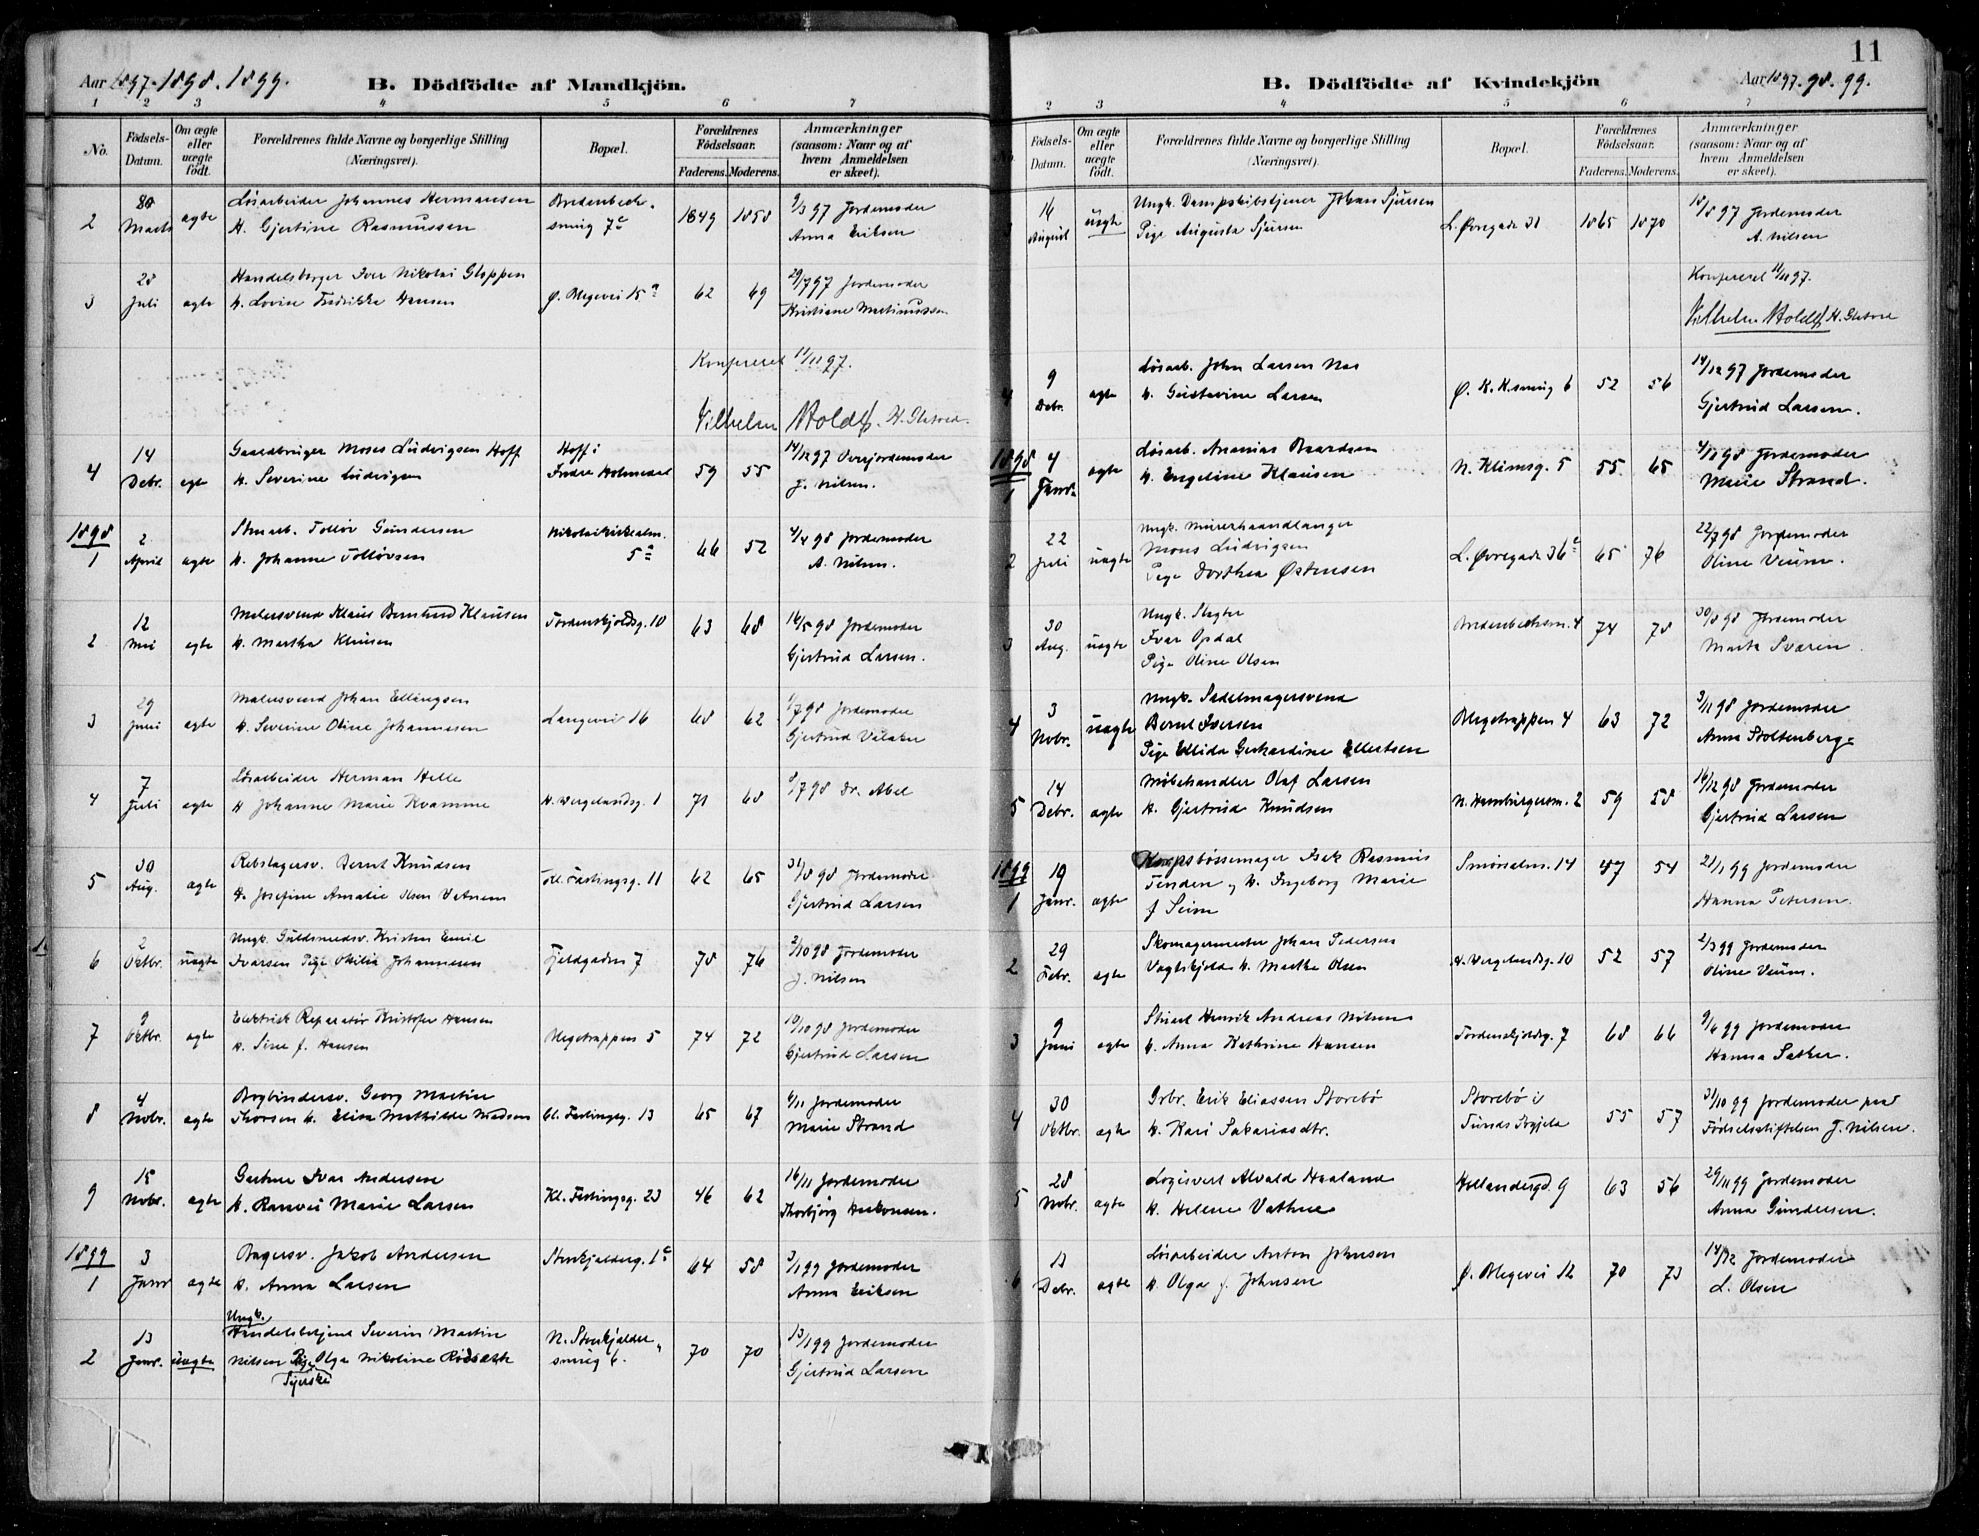 Aar 1897. 1898. 1899.
B. Dödfödte af Mandkjön.
1 2 3 4 5 6 7
No.
Födsels-Datum.
Om ægte eller uægte födt.
Forældrenes fulde Navne og borgerlige Stilling (Næringsvei).
Bopæl.
Forældrenes Födselsaar.
Faderens. Moderens.
Anmærkninger (saasom: Naar og af hvem Anmeldelsen er skeet).
2 Marts ægte Løsarbeider Johannes Hermansen Bredenbecks- 1849 1858 9/3 97 Jordemoder
H. Gjertine Rasmussen smug 7c Anna Eriksen
3 28 Juli ægte Handelsborger Iver Nikolai Gloppen Ø. Blegevei 15a 62 69 29/7 97 Jordemoder
H. Lovise Fredrikke Hansen Kristiane Martinussen
Konfereret 11/11 97.
Vilhelm Holdt, H. Glatved.
4 14 Debr. egte Gaardbruger Moses Ludvigsen Hoff Hoff i 59 55 14/12 97 Overjordemoder
H. Severine Ludvigsen Indre Holmedal J. Nilsen.
1898
1 2 April ægte Stuearb. Tollöv Gundersen Nikolaikirkealm. 66 52 4/4 98 Jordemoder
H. Johanne Tollövsen 5a A. Nilsen.
2 12 Mai egte Malersvend Klaus Berntsed Klausen Tordenskjoldsg. 10 63 68 16/5 98 Jordemoder
H. Martha Klausen Gjertrud Larsen.
3 29 Juni ægte Malersvend Johan Ellingsen Langevei 16 68 62 1/7 98 Jordemoder
H. Severine Oline Johannessen Gjertrud Valaker
4 7 Juli ægte Løsarbeider Herman Helle H. Wergelandsg. 1 71 68 8/7 98 Dr. Abel
H Johanne Marie Kvamme
5 30 Aug. ægte Rebslagersv. Bernt Knudsen Kl. Fastingsg. 11 62 65 31/8 98 Jordemoder
H. Josefine Amalie Olsen Gjertrud Larsen
6 2 Oktbr. uægte Ungk. Guldsmedsv. Kristen Emil Fjeldgaden 7 78 76 2/10 98 Jordemoder
Ivarsen Pige Otilia Johannesen J. Nilsen
7 9 Oktbr. ægte Elektrisk Reparatør Kristofer Hansen Blegetrappen 5 74 72 10/10 98 Jordemoder
H. Sine f. Hansen Gjertrud Larsen
8 4 Nobr. ægte Bogbindersv. Georg Martin Kl. Fastingsg. 13 65 67 6/11 Jordemoder
Thorsen H. Elisa Mathilde Madsen Marie Strand
9 15 Nobr. ægte Gartner Ivar Andersen Kl. Fastingsg. 23 46 62 16/11 Jordemoder
H. Ranvei Marie Larsen Thorbjørg Haakonsen.
1899
1 3 Janr ægte Bagersv. Jakob Andersen Storkjelderg. 1c 64 58 3/1 99 Jordemoder
H. Anna Larsen Anna Eriksen
2 13 Janr. uægte Ungk. Handelsbetjent Severin Martin N. Storkjelder- 70 70 13/1 99 Jordemoder
Nilsen Pige Olga Nikoline Rødseth smug 6. Gjertrud Larsen
Syerske
11
B. Dödfödte af Kvindekjön
Aar 1897. 98. 99.
2 3 4 5 6 7
No.
Födsels-Datum.
Om ægte eller uægte födt.
Forældrenes fulde Navne og borgerlige Stilling (Næringsvei).
Bopæl.
Forældrenes Födselsaar.
Faderens. Moderens.
Anmærkninger (saasom: Naar og af hvem Anmeldelsen er skeet).
3 14 August uægte Ungk. Dampskibstjener Johan Sjursen L. Øvregade 31 1865 1870 18/8 97 Jordemoder
Pige Augusta Sjursen A. Nilsen
Konfereret 11/11 97.
Vilhelm Holdt, H. Glatved
4 9 Debr. ægte Løsarb. John Larsen Nes Ø. K. K.smug 6 52 56 14/12 97 Jordemoder
H. Gustavine Larsen Gjertrud Larsen.
1898
1 4 Janr. ægte Løsarb. Ananias Baardsen N. Klimsg. 5 55 65 4/1 98 Jordemoder
H. Engeline Klausen Marie Strand.
2 22 Juli uægte Ungk. Murerhaandlanger
Mons Ludvigsen L. Øvregade 36c 65 76 22/7 98 Jordemoder
Pige Dorthea Østensen Oline Veum.
3 30 Aug. uægte Ungk. Slagter
Ivar Opdal Bredenbecksm. 4 74 78 30/8 98 Jordemoder
Pige Oline Olsen Marta Sværen.
4 3 Nobr. uægte Ungk. Sadelmagersvend
Bernt Iversen Blegetrappen 4 63 72 3/11 98 Jordemoder
Pige Ellida Gerhardine Ellertsen Anna Stoltenberg
5 14 Debr. ægte Møbehandler Olaf Larsen N. Hamburgersm. 2 59 58 16/12 98 Jordemoder
H. Gjertrud Knudsen Gjertrud Larsen
1899
1 19 Janr. ægte Korpsbøssemager Isak Rasmus Smörsalm. 14 47 54 21/1 99 Jordemoder
Tenden og H. Ingeborg Marie Hanna Petersen.
f Seim
2 29 Febr. ægte Skomagermester Johan Pedersen H. Wergelandsg. 10 52 57 2/3 99 Jordemoder
Vagtskjold H. Marthe Olsen Oline Veum.
3 9 Juni ægte Stuert Henrik Andreas Nilsen Tordenskjoldsg. 7 68 66 9/6 99 Jordemoder
H. Anna Kathrine Hansen Hanna Sæther.
4 30 Oktbr. ægte Grbr. Erik Eliassen Storebø Storebø i 55 57 31/10 99 Jordemoder paa
H. Kari Sakariasdtr. Sunds Prgjeld Fødselsstiftelsen J. Nilsen.
5 28 Nobr. ægte Logisvert Alvald Haaland Hollandergd. 9 63 56 29/11 99 Jordemoder
H. Helene Vathne Anna Gundersen.
6 13 Debr. ægte Løsarbeider Anton Johnsen Ø. Blegevei 12 70 73 14/12 Jordemoder
H. Olga f. Johnsen L. Olsen